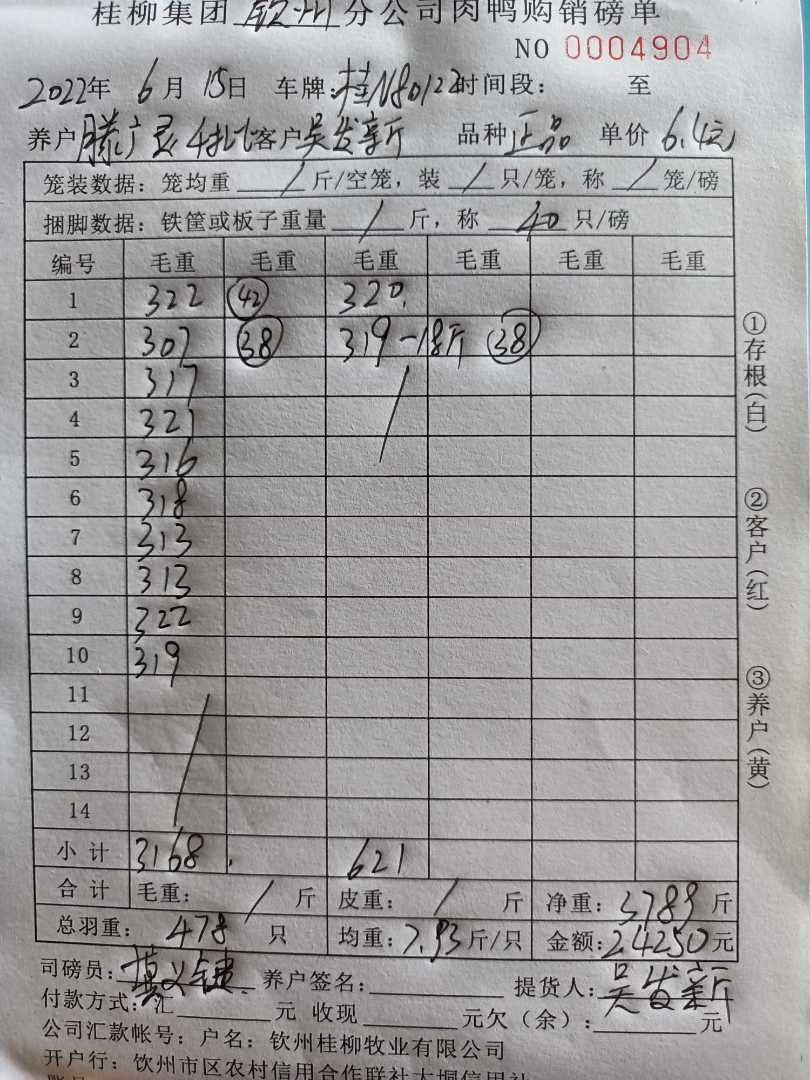 桂柳集团 钦州 分公司肉鸭购销磅单
NO 0004904
2022年 6月 15日 车牌:桂N80122 时间段: 至
养户 滕广灵 客户 吴发新 品种 正品 单价 6.4元
笼装数据: 笼均重 / 斤/空笼, 装 / 只/笼, 称 / 笼/磅
捆脚数据: 铁筐或板子重量 / 斤, 称 40 只/磅
编号 毛重 毛重 毛重 毛重 毛重 毛重
1 322 42 320.
2 307 38 319-18斤 38
3 317 /
4 321
5 316
6 318
7 313
8 313
9 322
10 319
11 /
12
13
14
小计 3168 621
合计 毛重: / 斤 皮重: / 斤 净重: 3789 斤
总羽重: 478 只 均重: 7.93 斤/只 金额: 24250 元
司磅员: 养户签名: 提货人: 吴发新
付款方式: 汇 元 收现 元欠(余): 元
公司汇款帐号: 户名: 钦州桂柳牧业有限公司
开户行: 钦州市区农村信用合作联社大垌信用社
①存根(白)
②客户(红)
③养户(黄)